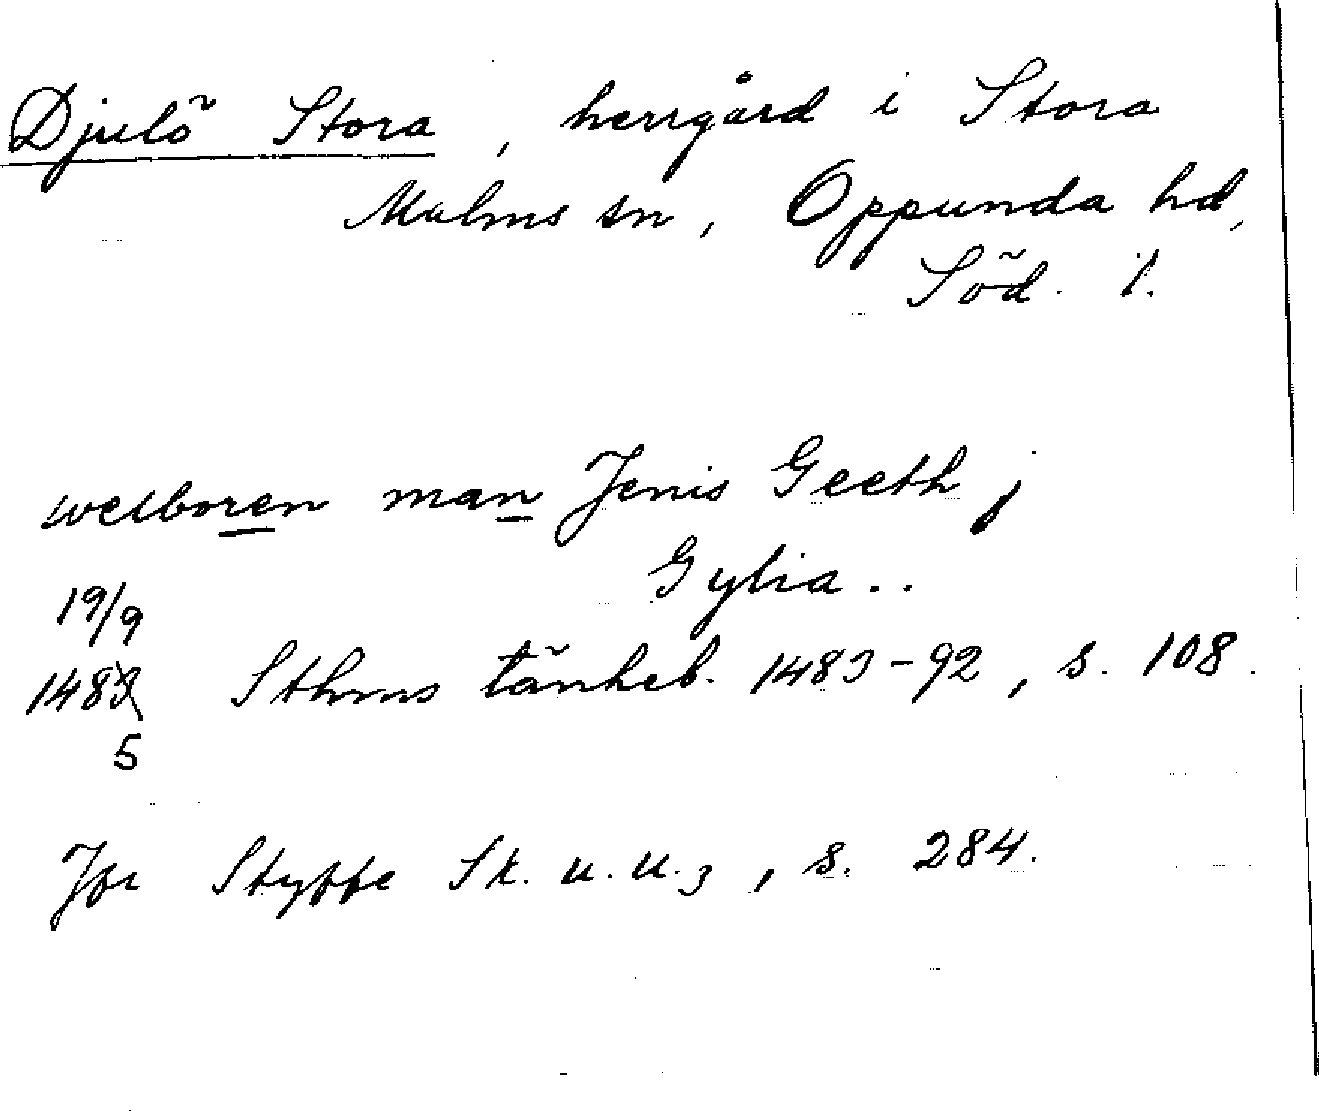 Djulö Stora, herrgård i Stora
Malms sn, Oppunda hd,
Söd. l.
welboren man Jenis Geeth j
Gylia..
19/9
1483 Sthms tänkeb. 1483-92, s. 108.
5
Jfr Styffe Sk. u. u.3, s. 284.